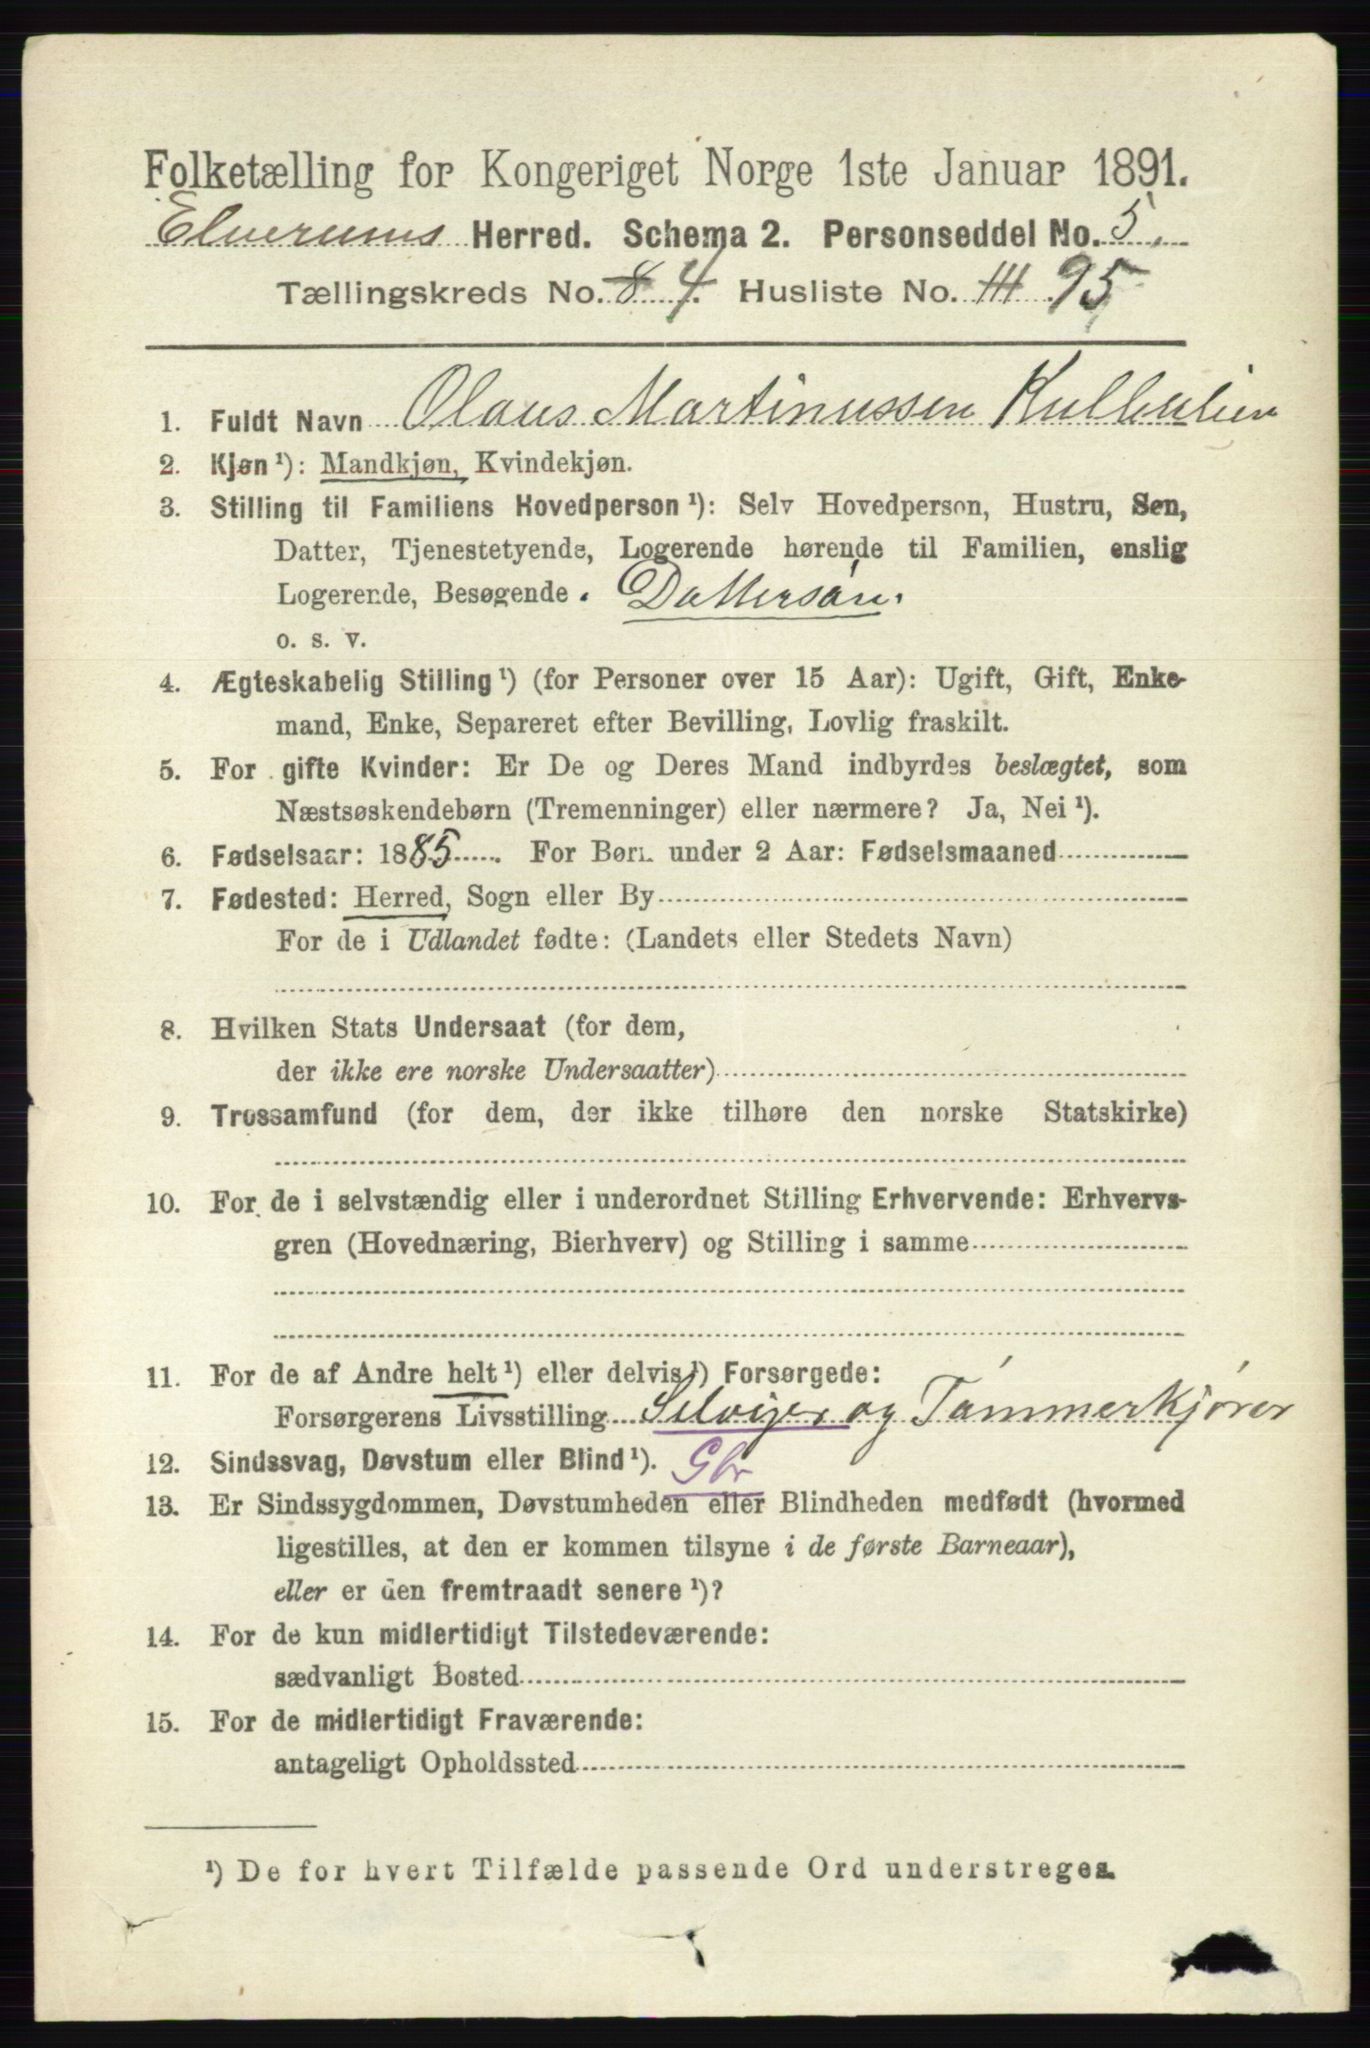 Folketælling for Kongeriget Norge 1ste Januar 1891.
Elverums Herred. Schema 2. Personseddel No. 5.
Tællingskreds No. 8 4. Husliste No. 111 95
1. Fuldt Navn Olaus Martinussen
2. Kjøn ¹): Mandkjøn, Kvindekjøn.
3. Stilling til Familiens Hovedperson ¹): Selv Hovedperson, Hustru, Søn,
Datter, Tjenestetyende, Logerende hørende til Familien, enslig
Logerende, Besøgende. Dattersøn.
o. s. v.
4. Ægteskabelig Stilling ¹) (for Personer over 15 Aar): Ugift, Gift, Enke-
mand, Enke, Separeret efter Bevilling, Lovlig fraskilt.
5. For gifte Kvinder: Er De og Deres Mand indbyrdes beslægtet, som
Næstsøskendebørn (Tremenninger) eller nærmere? Ja, Nei ¹).
6. Fødselsaar: 1885. For Børn under 2 Aar: Fødselsmaaned
7. Fødested: Herred, Sogn eller By
For de i Udlandet fødte: (Landets eller Stedets Navn)
8. Hvilken Stats Undersaat (for dem,
der ikke ere norske Undersaatter)
9. Trossamfund (for dem, der ikke tilhøre den norske Statskirke)
10. For de i selvstændig eller i underordnet Stilling Erhvervende: Erhvervs-
gren (Hovednæring, Bierhverv) og Stilling i samme
11. For de af Andre helt ¹) eller delvis ¹) Forsørgede:
Forsørgerens Livsstilling Selveier og Tømmerkjører
12. Sindssvag, Døvstum eller Blind ¹). Gbr
13. Er Sindssygdommen, Døvstumheden eller Blindheden medfødt (hvormed
ligestilles, at den er kommen tilsyne i de første Barneaar),
eller er den fremtraadt senere ¹)?
14. For de kun midlertidigt Tilstedeværende:
sædvanligt Bosted
15. For de midlertidigt Fraværende:
antageligt Opholdssted
¹) De for hvert Tilfælde passende Ord understreges.